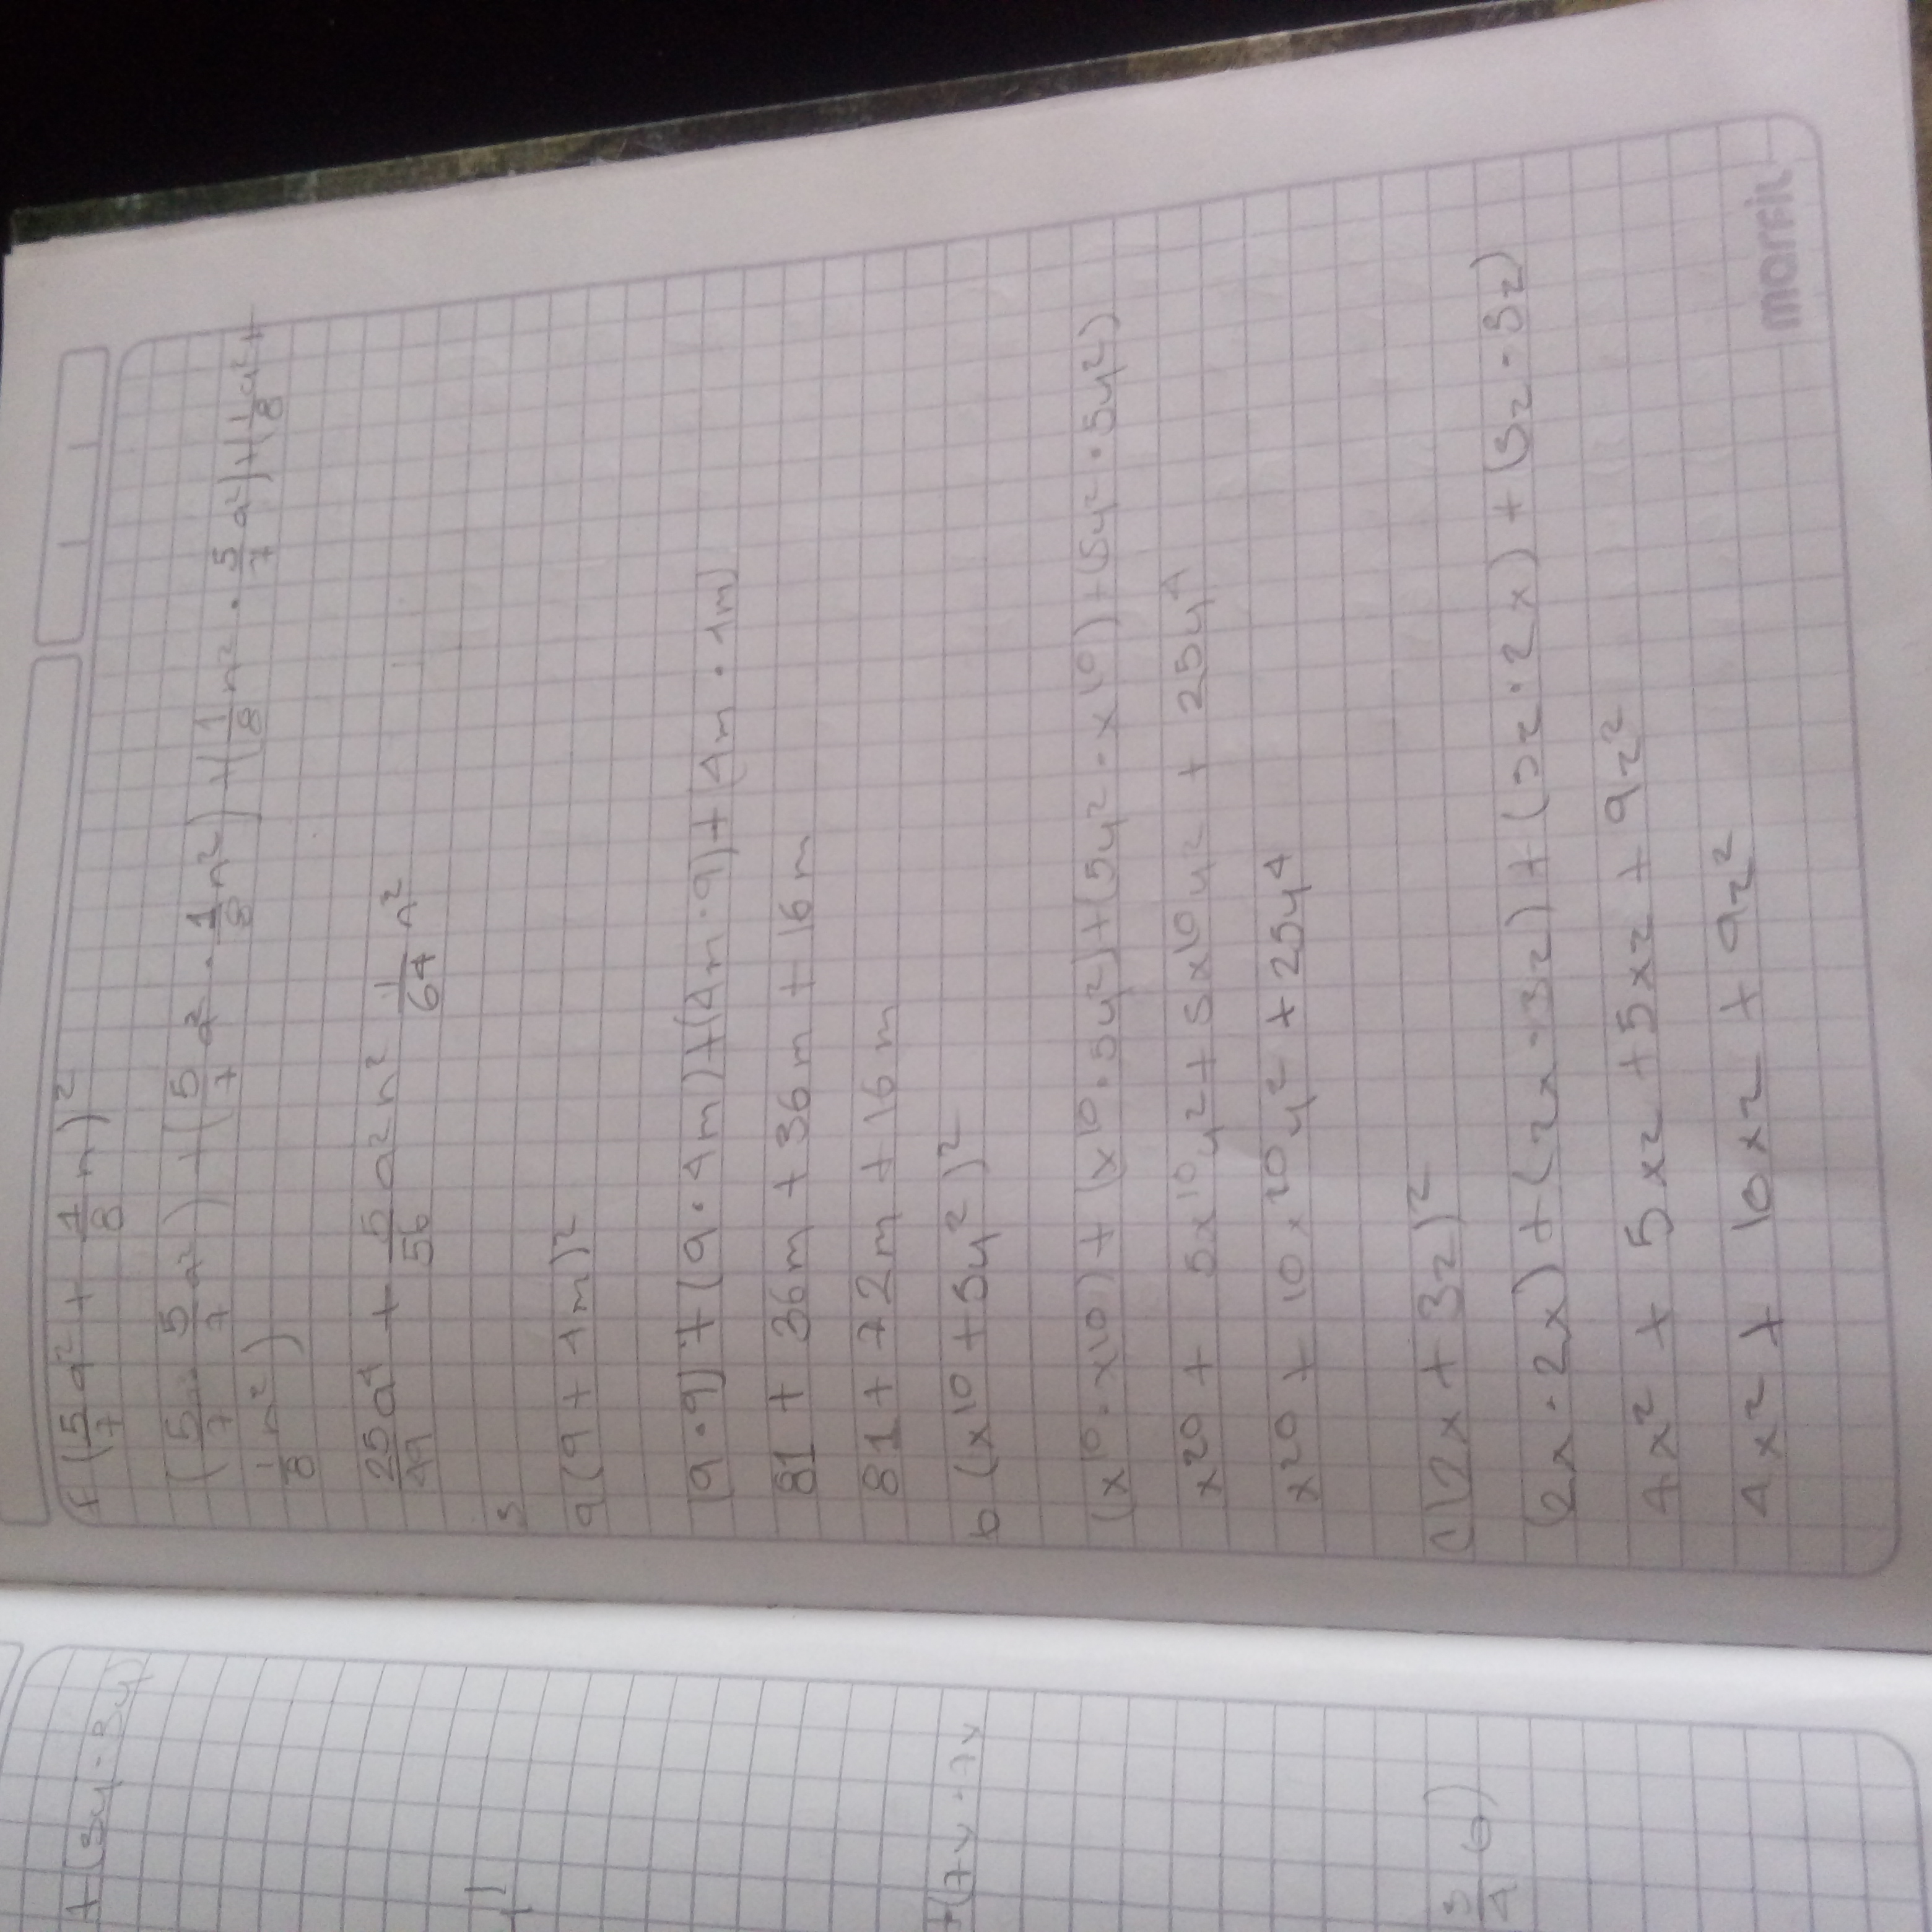 +(3y-3y)
f (5/7 a² + 1/8 n)²
(5/7 · 5/7 a²) + (5/7 a² · 1/8 n²) + (1/8 n² · 5/7 a²) + (1/8 a² +
1/8 n²)
25/49 a⁴ + 5/56 a² n² 1/64 n²
3
a (9 + 4m)²
(9 · 9) + (9 · 4m) + (4m · 9) + (4m · 4m)
81 + 36m + 36m + 16m
81 + 72m + 16m
+(7y · 7y
b (x¹⁰ + 5y²)²
(x¹⁰ · x¹⁰) + (x¹⁰ · 5y²) + (5y² · x¹⁰) + (5y² · 5y²)
x²⁰ + 5x¹⁰y² + 5x¹⁰y² + 25y⁴
x²⁰ + 10x²⁰y² + 25y⁴
c (2x + 3z)²
3/4 6)
(2x · 2x) + (2x · 3z) + (3z · 2x) + (3z · 3z)
4x² + 5xz + 5xz + 9z²
4x² + 10xz + 9z²
marfil